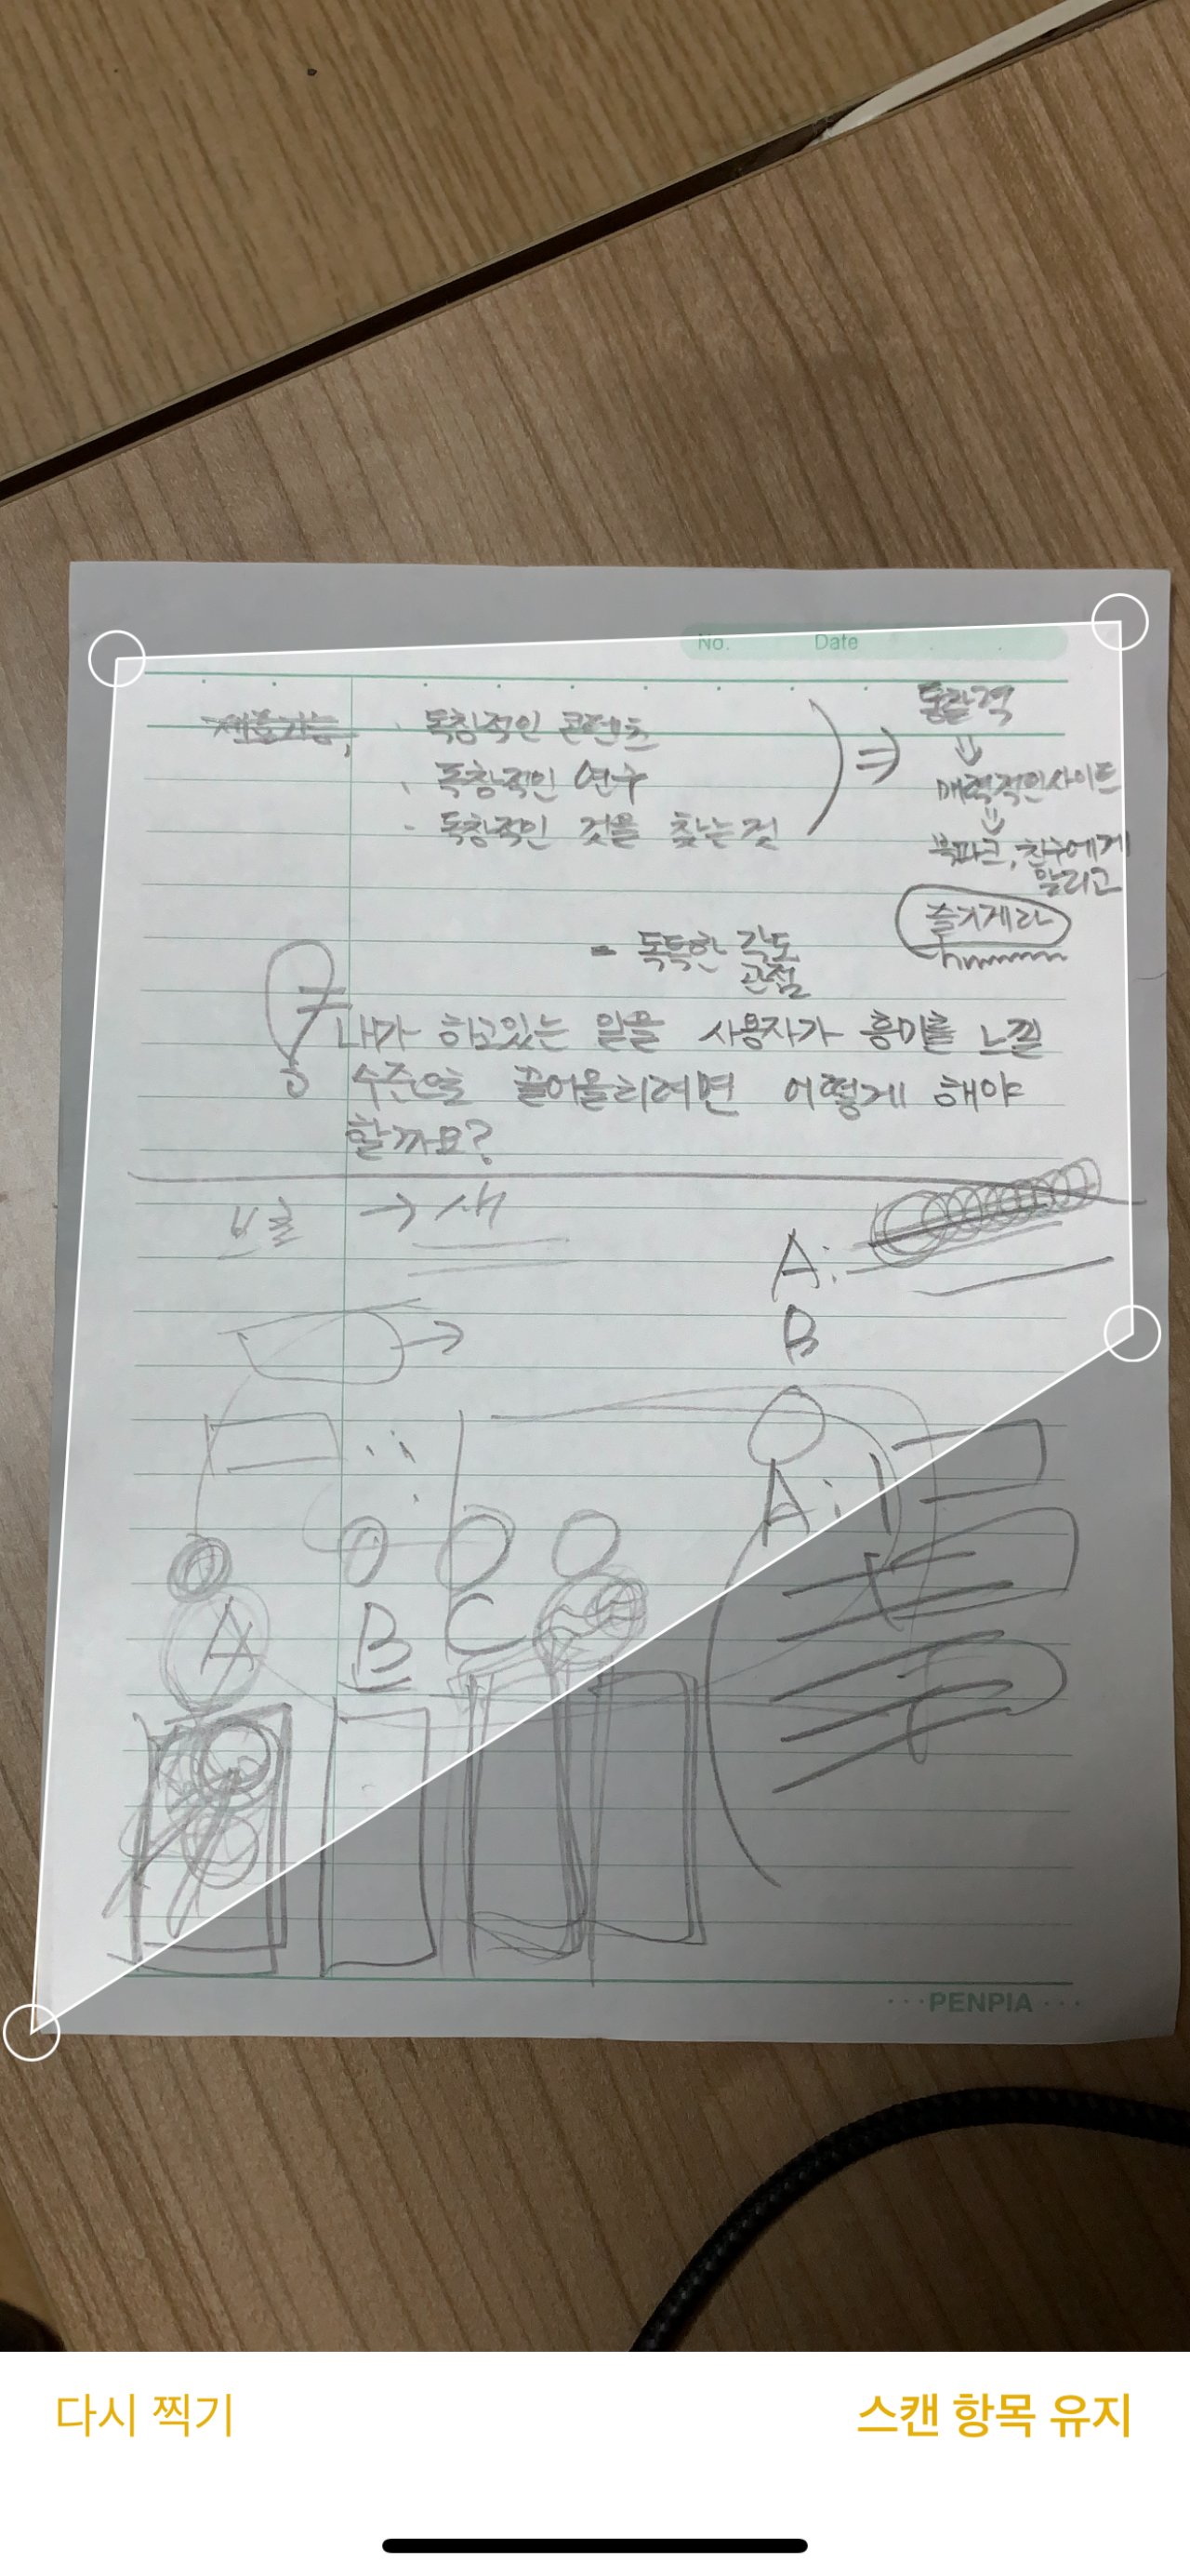 No. Date
· 독창적인 콘텐츠
· 독창적인 연구
- 독창적인 것을 찾는 것
⇒
통찰력
⇓
매력적인사이트
⇓
북파크, 친구에게
알리고
즐기게라
= 독특한 각도
관점
내가 하고있는 일을 사용자가 흥미를 느낄
수준으로 끌어올리려면 어떻게 해야
할까요?
→ 새
A:
B
A:
A B C
···PENPIA···
다시 찍기
스캔 항목 유지